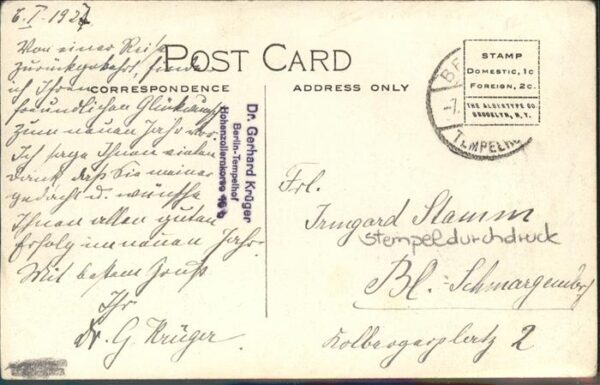 6.I.1927
Von einer Reise
zurückgekehrt, finde
ich Ihren
freundlichen Glückwunsch
zum neuen Jahr vor.
Ich sage Ihnen vielen
Dank, daß Sie meiner
gedacht u. wünsche
Ihnen allen guten
Erfolg im neuen Jahr.
Mit bestem Gruß
Ihr
Dr. G Krüger
POST CARD
CORRESPONDENCE
ADDRESS ONLY
Dr. Gerhard Krüger
Berlin-Tempelhof
Hohenzollernkorso
STAMP
DOMESTIC, 1C
FOREIGN, 2C.
THE ALBERTYPE CO.
BROOKLYN, N.Y.
BE
-7.
TEMPELHO
Frl.
Irmgard Stamm
stempeldurchdruck
Bl.-Schmargendorf
Kolbergerplatz 2